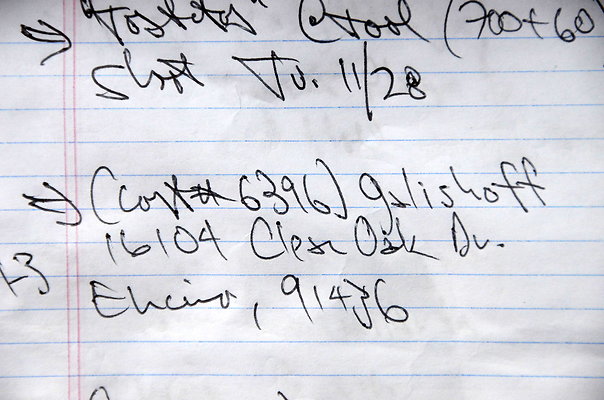 ⇒ "Tostitos" @ Pool (700+60)
Shoot Tu. 11/28
⇒ (Cont# 6396) Galishoff
16104 Clear Oak Dr.
-3
Encino, 91436